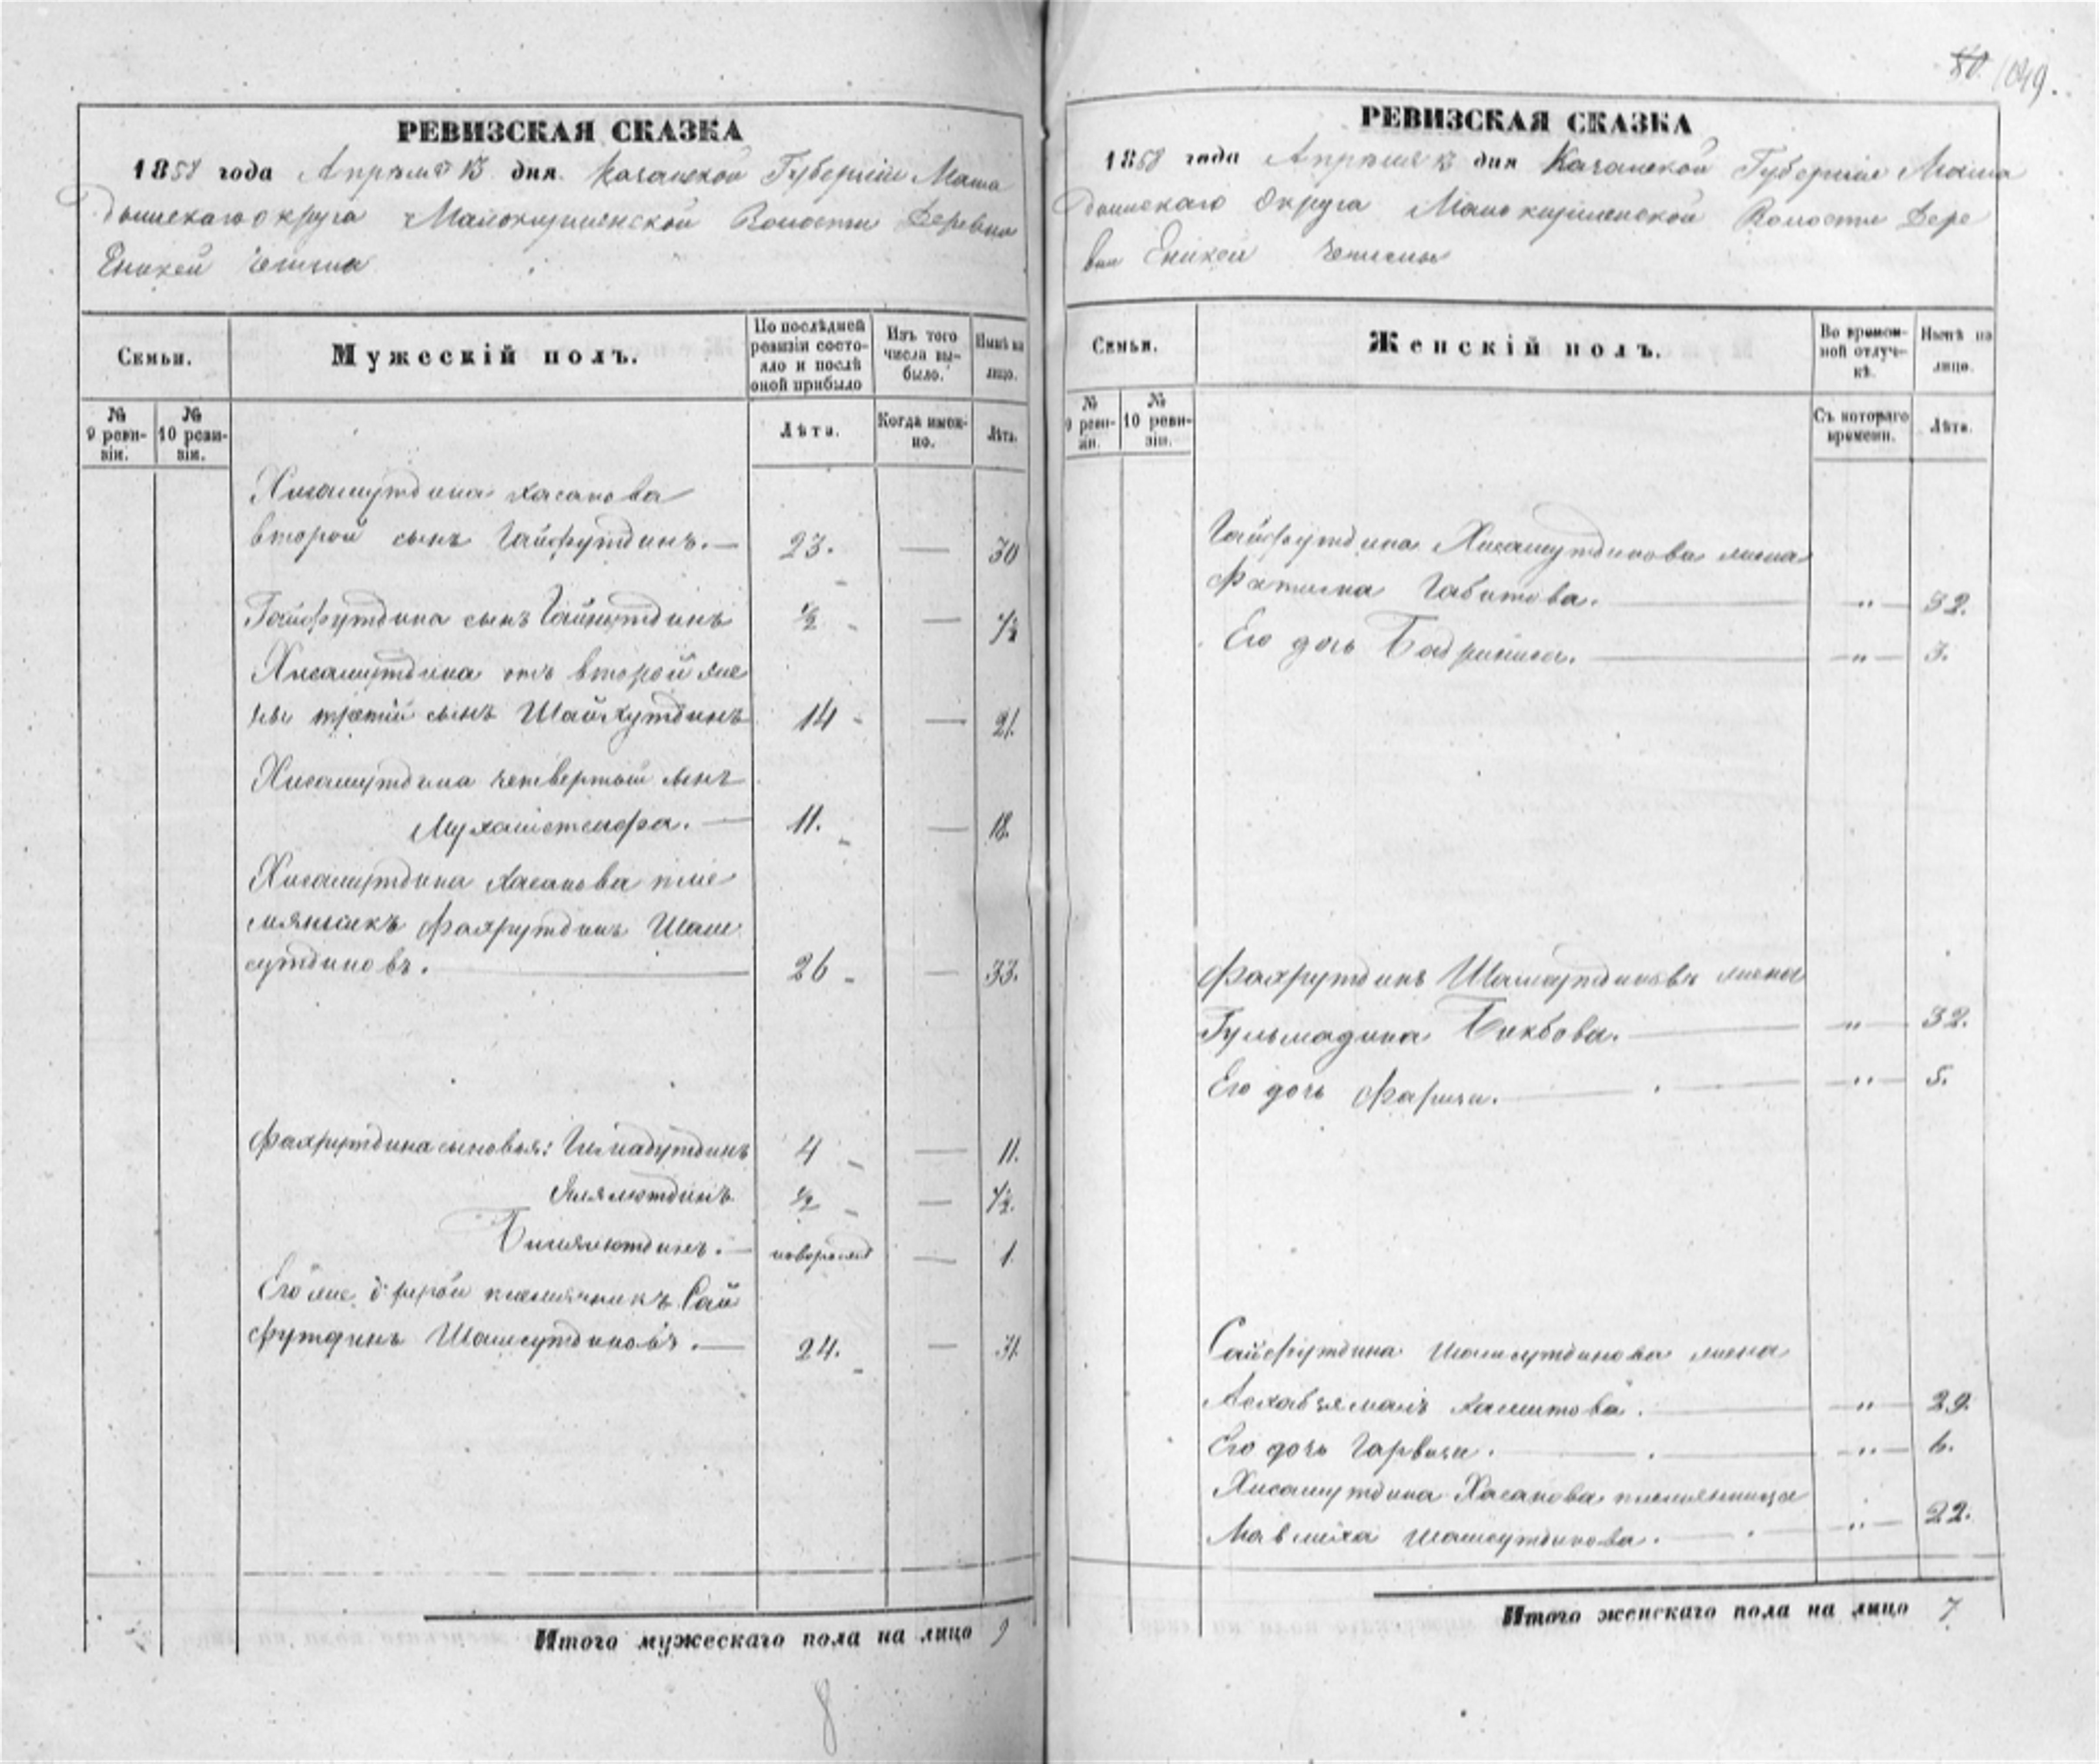 80. 1049.
РЕВИЗСКАЯ СКАЗКА
1858 года Апрѣля 13 дня. Казанской Губерніи Мама
дышскаго округа Малокирменской Волости Деревни
Еникей Чишма
Семьи.
Мужескій полъ.
По послѣдней ревизіи состо-
яло и послѣ
оной прибыло
Изъ того
числа вы-
было.
Нынѣ на
лицо.
№
9 реви-
зіи.
№
10 реви-
зіи.
Лѣта.
Когда имен-
но.
Лѣта.
Хисамутдина Хасанова
второй сынъ Гайфутдинъ.— 23. — 30
Гайфутдина сынъ Гайнутдинъ ½ — 7½
Хисамутдина отъ второй же
ны третій сынъ Шайхутдинъ 14 — 21.
Хисамутдина четвертый сынъ
11. — 18.
Хисамутдина Хасанова пле
мянникъ Фахрутдинъ Шам
сутдиновъ. 26 — 33.
Фахрутдина сыновья: Гимадутдинъ 4 — 11.
Ялялютдинъ ½ — 7½.
Билялютдинъ.— новорожд — 1
Его же второй племянникъ Сай
футдинъ Шамсутдиновъ.— 24. — 31.
Итого мужескаго пола на лицо 9
8
РЕВИЗСКАЯ СКАЗКА
1858 года Апрѣля 13 дня Казанской Губерніи Мама
дышскаго Округа Малокирменской Волости Дере
вни Еникей Чишмы
Семьи.
Женскій полъ.
Во времен-
ной отлуч-
кѣ.
Нынѣ на
лицо.
№
9 реви-
зіи.
№
10 реви-
зіи.
Съ котораго
времени.
Лѣта.
Гайфутдина Хисамутдинова жена
Фатима Габитова. — „ — 32.
Его дочь Бадриниса. — „ — 3.
Фахрутдинъ Шамсутдиновъ жена
Гульмадина Бикбова. — „ — 32.
Его дочь — „ — 5.
Сайфутдина Шамсутдинова жена
Хамитова. — „ — 29.
Его дочь — „ — 6.
Хисамутдина Хасанова племянница
Мавлиха Шамсутдинова. — „ — 22.
Итого женскаго пола на лицо 7